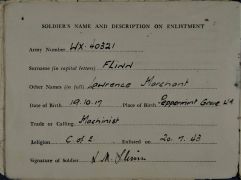 SOLDIER'S NAME AND DESCRIPTION ON ENLISTMENT
Army Number WX 40321
Surname (in capital letters) FLINN
Other Names (in full) Lawrence Marchant
Date of Birth 19.10.17 Place of Birth Peppermint Grove WA
Trade or Calling Machinist
Religion C of E Enlisted on 20.7.43
Signature of Soldier L. M. Flinn